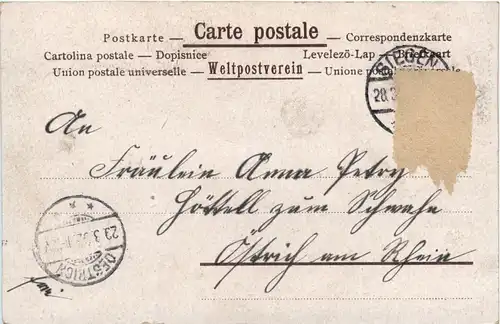 Postkarte — Carte postale — Correspondenzkarte
Cartolina postale — Dopisnice Levelezö-Lap — Briefkaart
Union postale universelle — Weltpostverein — Unione postale universale
SIEGEN
28.3
An
Fräulein Anna Petry
Höttell zum Schwahn
Östrich am Rhein
29.3
OESTRICH